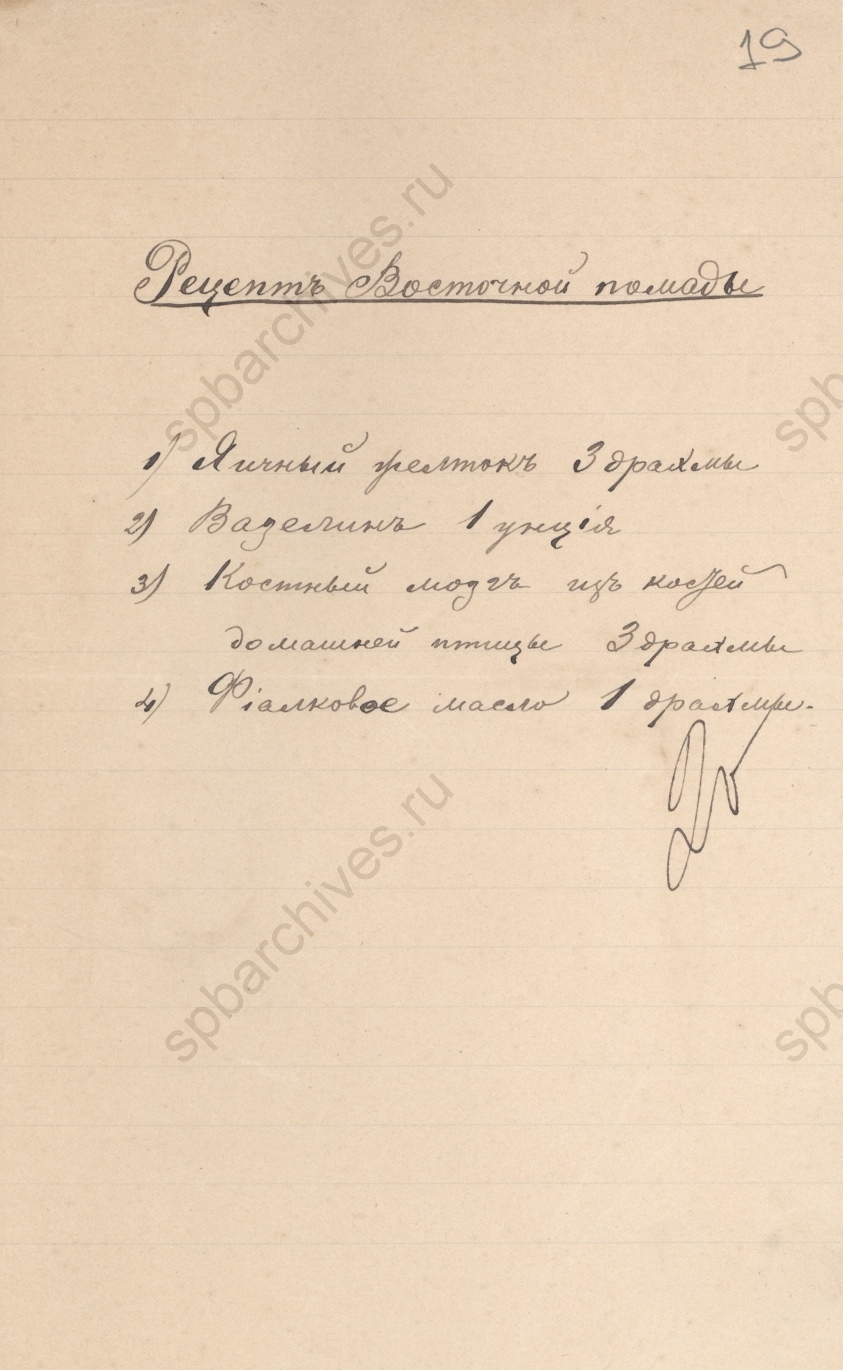 19
Рецептъ Восточной помады
1) Яичный желтокъ 3 драхмы
2) Вазелинъ 1 унція
3) Костный мозгъ изъ костей
домашней птицы 3 драхмы
4) Фіалковое масло 1 драхмы.
spbarchives.ru
spbarchives.ru
spb
spb